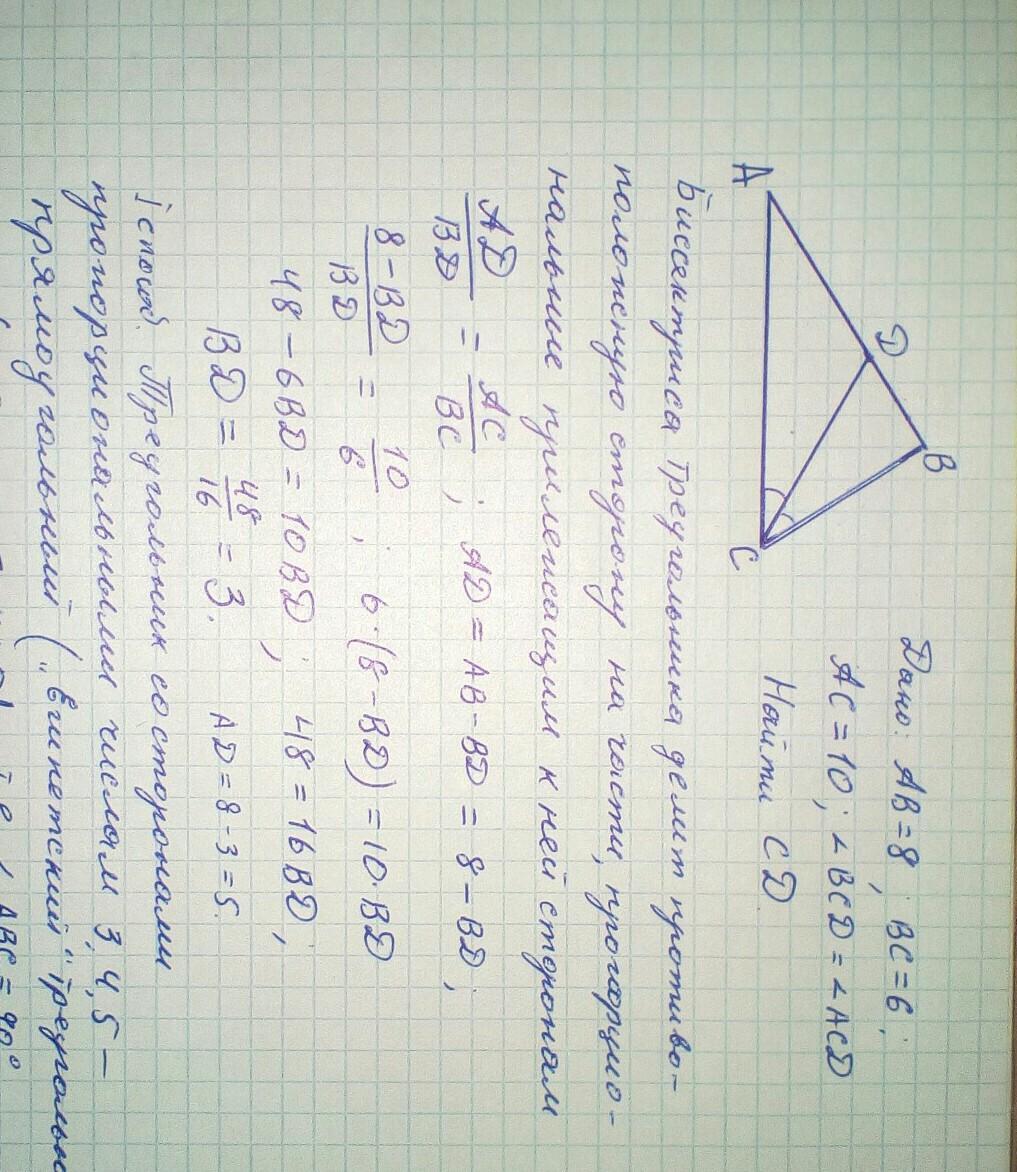 Дано: AB=8; BC=6;
AC=10; ∠BCD=∠ACD
Найти CD
A
D
B
C
Биссектриса треугольника делит противо-
положную сторону на части, пропорцио-
нальные прилежащим к ней сторонам
AD/BD = AC/BC ; AD=AB-BD=8-BD;
8-BD/BD = 10/6 ; 6·(8-BD)=10·BD
48-6BD=10BD; 48=16BD;
BD=48/16=3. AD=8-3=5.
I способ. Треугольник со сторонами
пропорциональными числам 3,4,5 —
прямоугольный („Египетский" треугольн
ABC=90°